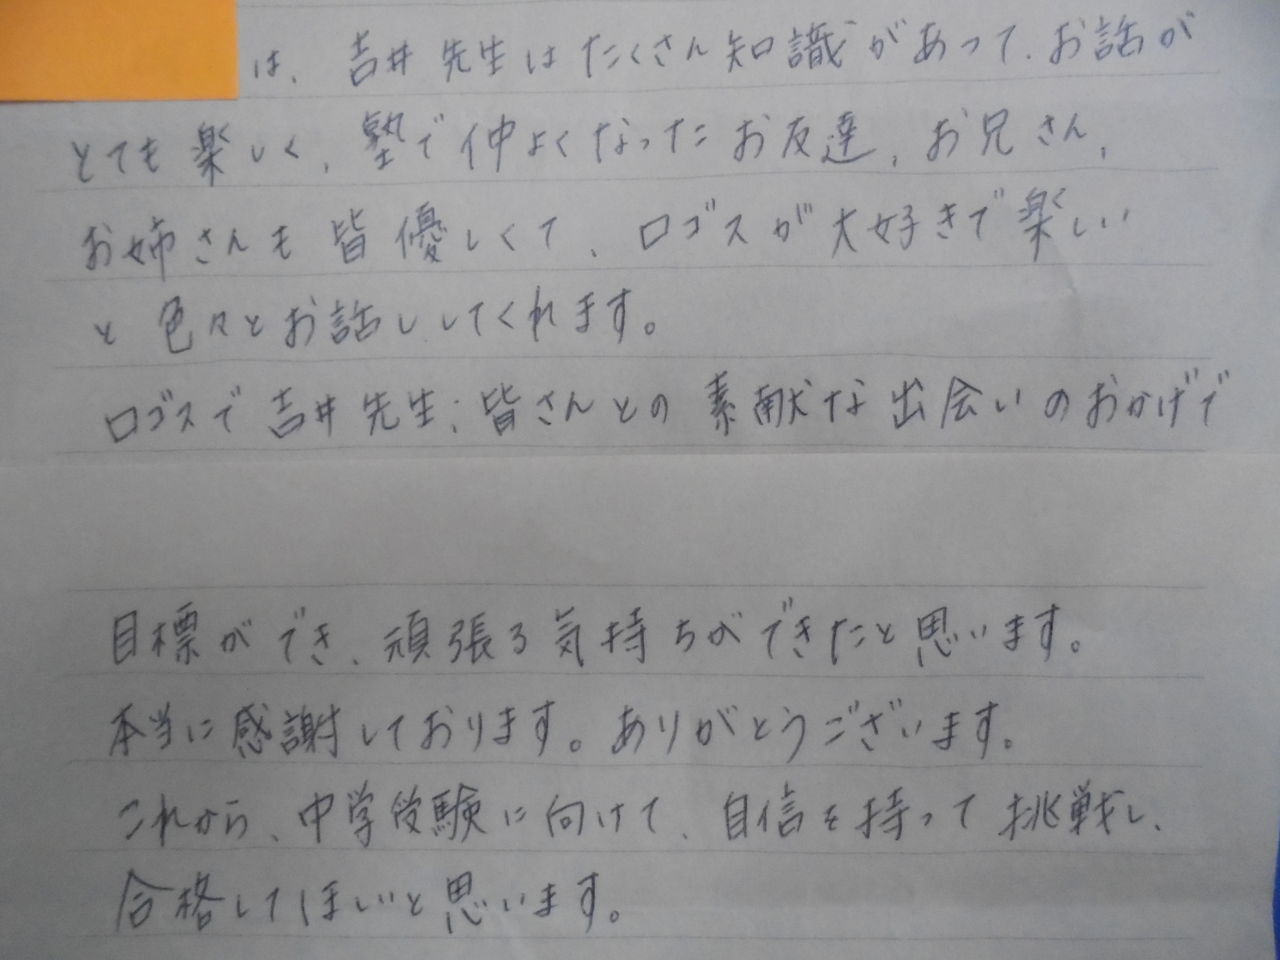 は、吉井先生はたくさん知識があって、お話が
とても楽しく、塾で仲よくなったお友達、お兄さん、
お姉さんも皆優しくて、ロゴスが大好きで楽しい
と色々とお話ししてくれます。
ロゴスで吉井先生、皆さんとの素献な出会いのおかげで
目標ができ、頑張る気持ちができたと思います。
本当に感謝しております。ありがとうございます。
これから、中学受験に向けて、自信を持って挑戦し、
合格してほしいと思います。